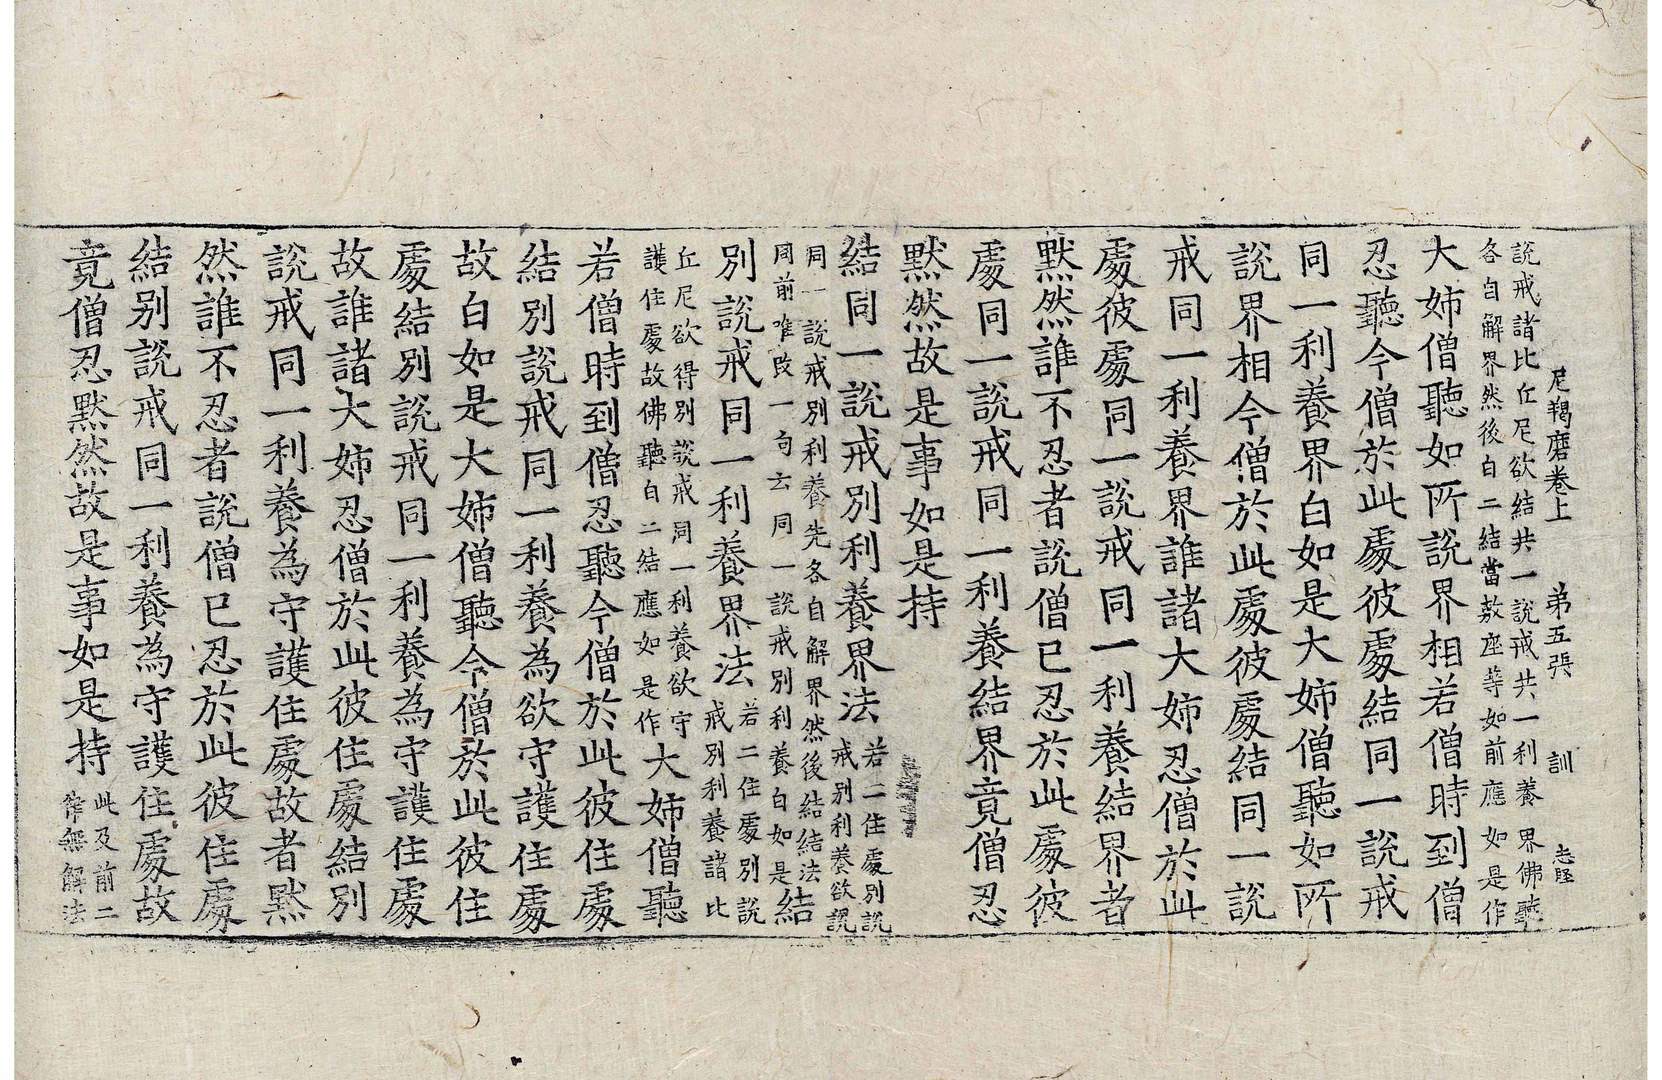 尼羯磨卷上 第五張 訓
說戒諸比丘尼欲結共一說戒共一利養界佛聽
各自解界然後白二結當敷座等如前應如是作
大姉僧聽如所說界相若僧時到僧
忍聽今僧於此處彼處結同一說戒
同一利養界白如是大姉僧聽如所
說界相今僧於此處彼處結同一說
戒同一利養界誰諸大姉忍僧於此
處彼處同一說戒同一利養結界者
默然誰不忍者說僧已忍於此處彼
處同一說戒同一利養結界竟僧忍
默然故是事如是持
結同一說戒別利養界法 若二住處別說
戒別利養欲說
同一說戒別利養先各自解界然後結結法
同前唯改一句云同一說戒別利養白如是 結
別說戒同一利養界法 若二住處別說
戒別利養諸比
丘尼欲得別說戒同一利養欲守
護住處故佛聽白二結應如是作 大姉僧聽
若僧時到僧忍聽今僧於此彼住處
結別說戒同一利養為欲守護住處
故白如是大姉僧聽今僧於此彼住
處結別說戒同一利養為守護住處
故誰諸大姉忍僧於此彼住處結別
說戒同一利養為守護住處故者默
然誰不忍者說僧已忍於此彼住處
結別說戒同一利養為守護住處故
竟僧忍默然故是事如是持 此及前二
條無解法